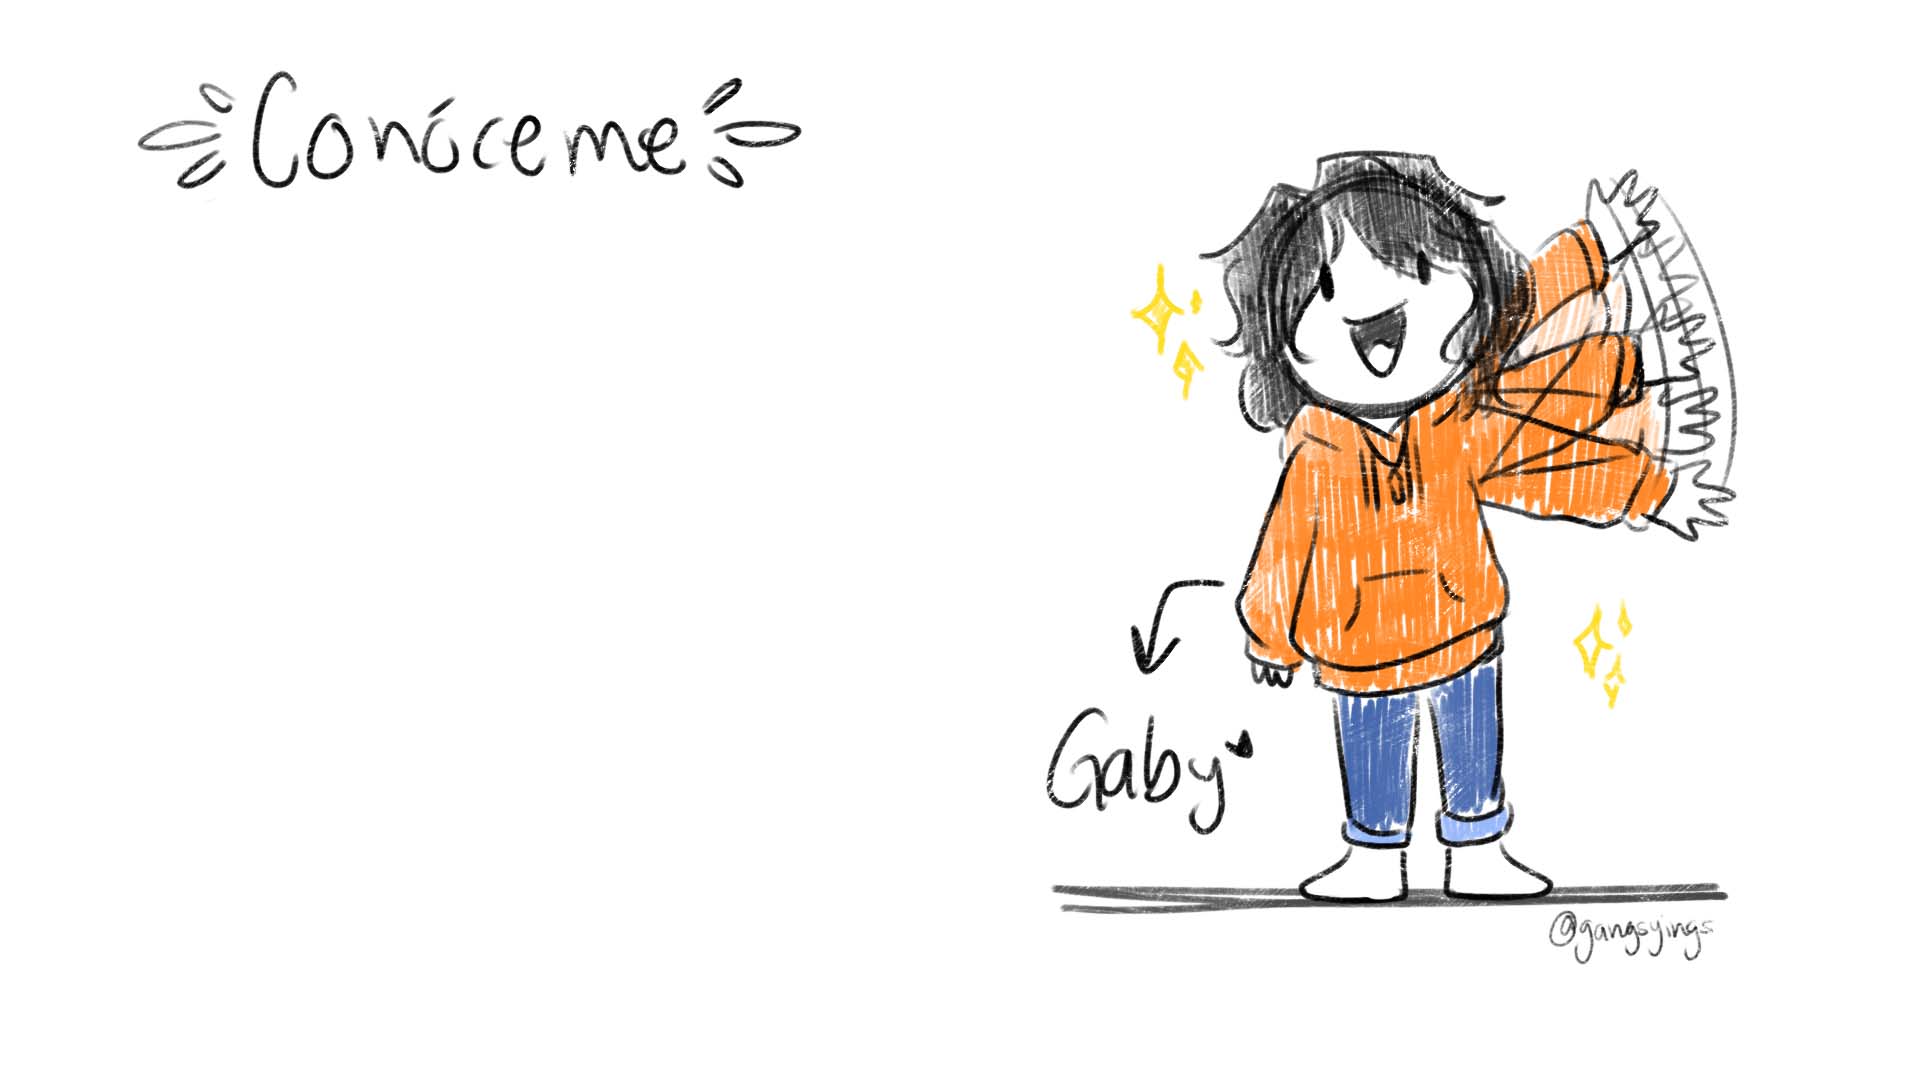 Conóceme
Gaby
@gangsyings